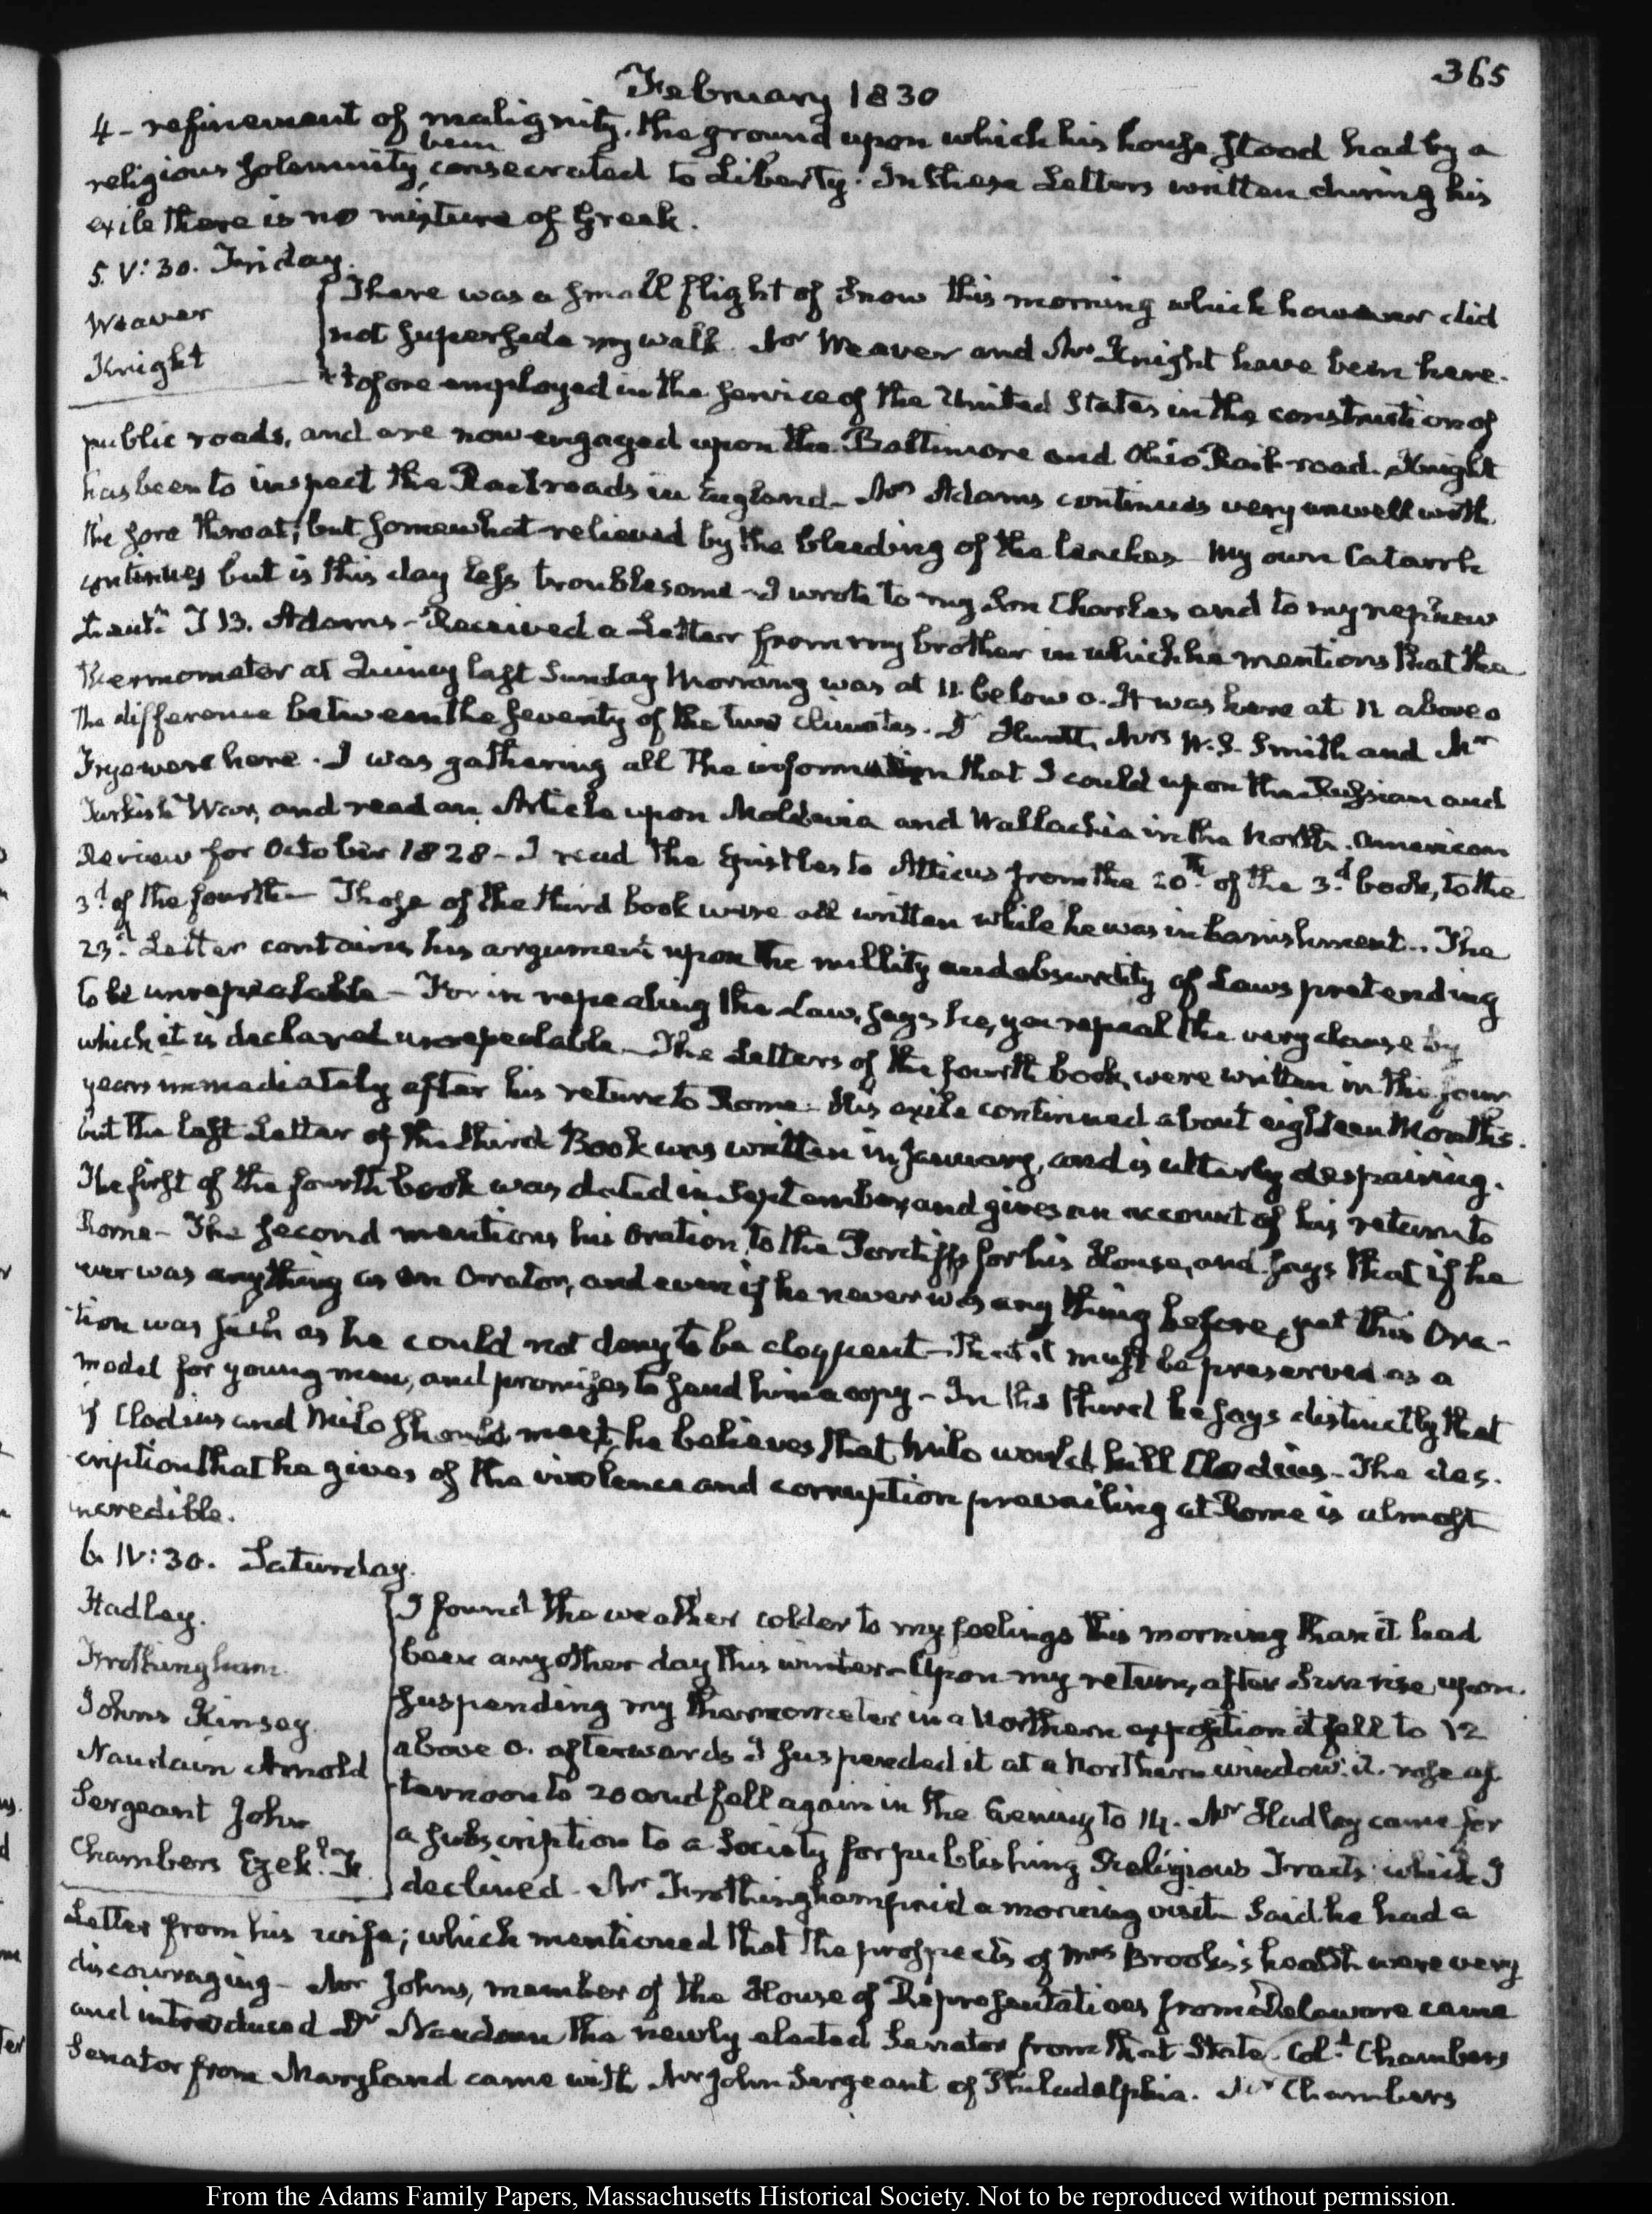 365
February 1830
4 - refinement of malignity, the ground upon which his house stood had by a
religious solemnity been consecrated to Liberty. In these Letters written during his
exile there is no mixture of Greek.
5. V:30. Friday.
Weaver
Knight
There was a small flight of Snow this morning which however did
not supersede my walk. Mr Weaver and Mr Knight have been here.
tofore employed in the service of the United States in the construction of
public roads, and are now engaged upon the Baltimore and Ohio Rail-road. Knight
has been to inspect the Railroads in England - Mrs Adams continues very unwell with
the sore throat; but somewhat relieved by the bleeding of the leeches My own Catarrh
continues but is this day less troublesome - I wrote to my Son Charles and to my nephew
Lieutt J B. Adams - Received a Letter from my brother in which he mentions that the
thermometer at Quincy last Sunday Morning was at 11. below 0. It was here at 11 above 0
the difference between the severity of the two climates. Dr Huntt, Mrs W. S. Smith and Mr
Frye were here. I was gathering all the information that I could upon the Russian and
Turkish War, and read an Article upon Moldavia and Wallachia in the North American
Review for October 1828 - I read the Epistles to Atticus from the 20th of the 3d book, to the
3d of the fourth - Those of the third book were all written while he was in banishment. The
23d Letter contains his argument upon the nullity and absurdity of Laws pretending
to be unrepealable - For in repealing the Law, says he, you repeal the very clause by
which it is declared unrepealable - The Letters of the fourth book, were written in the four
years immediately after his return to Rome. His exile continued about eighteen Months.
but the last Letter of the third Book was written in January, and is utterly despairing.
The first of the fourth book was dated in September, and gives an account of his return to
Rome - The second mentions his Oration to the Pontiffs for his House, and says that if he
ever was anything as an Orator, and even if he never was any thing before, yet this Ora-
tion was such as he could not deny to be eloquent - That it must be preserved as a
model for young men, and promises to send him a copy - In the third he says distinctly that
if Clodius and Milo should meet, he believes that Milo would kill Clodius - The des.
cription that he gives of the violence and corruption prevailing at Rome is almost
incredible.
6. IV:30. Saturday.
Hadley.
Frothingham
Johns Kinsey
Naudain Arnold
Sergeant John
Chambers Ezekl F.
I found the weather colder to my feelings this morning than it had
been any other day this winter - Upon my return, after Sun rise, upon
suspending my thermometer in a Northern exposition it fell to 12
above 0. afterwards I suspended it at a Northern window. it rose af
ternoon to 20 and fell again in the Evening to 14. Mr Hadley came for
a subscription to a Society for publishing Religious Tracts which I
declined - Mr Frothingham paid a morning visit - Said he had a
Letter from his wife; which mentioned that the prospects of Mrs Brooks's health were very
discouraging - Mr Johns, member of the House of Representatives from Delaware came
and introduced Dr Naudain the newly elected Senator from that State. Col. Chambers
Senator from Maryland came with Mr John Sergeant of Philadelphia. Mr Chambers
From the Adams Family Papers, Massachusetts Historical Society. Not to be reproduced without permission.